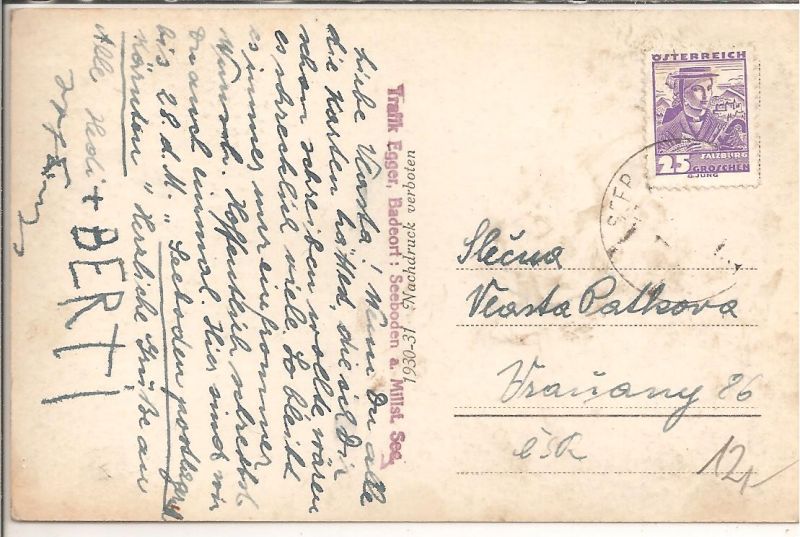 Liebe Vlasta! Wenn Du alle
die Karten hättest, die ich Dir
schon schreiben wollte wären
es schrecklich viele. So bleibt
es immer nur ein frommer
Wunsch. Hoffentlich schreibst
Du auch einmal. Hier sind wir
bis 28. d. M. "Seeboden postlagernd
Kärnten" Herzliche Grüße an
Alle Hedi + BERTI
Trafik Egger, Badeort: Seeboden a. Millst. See
1930-31 Nachdruck verboten
ÖSTERREICH
SALZBURG
25 GROSCHEN
G. JUNG
SEEB
Slečna
Vlasta Palkova
Vraňany 86
ČSR
12,-